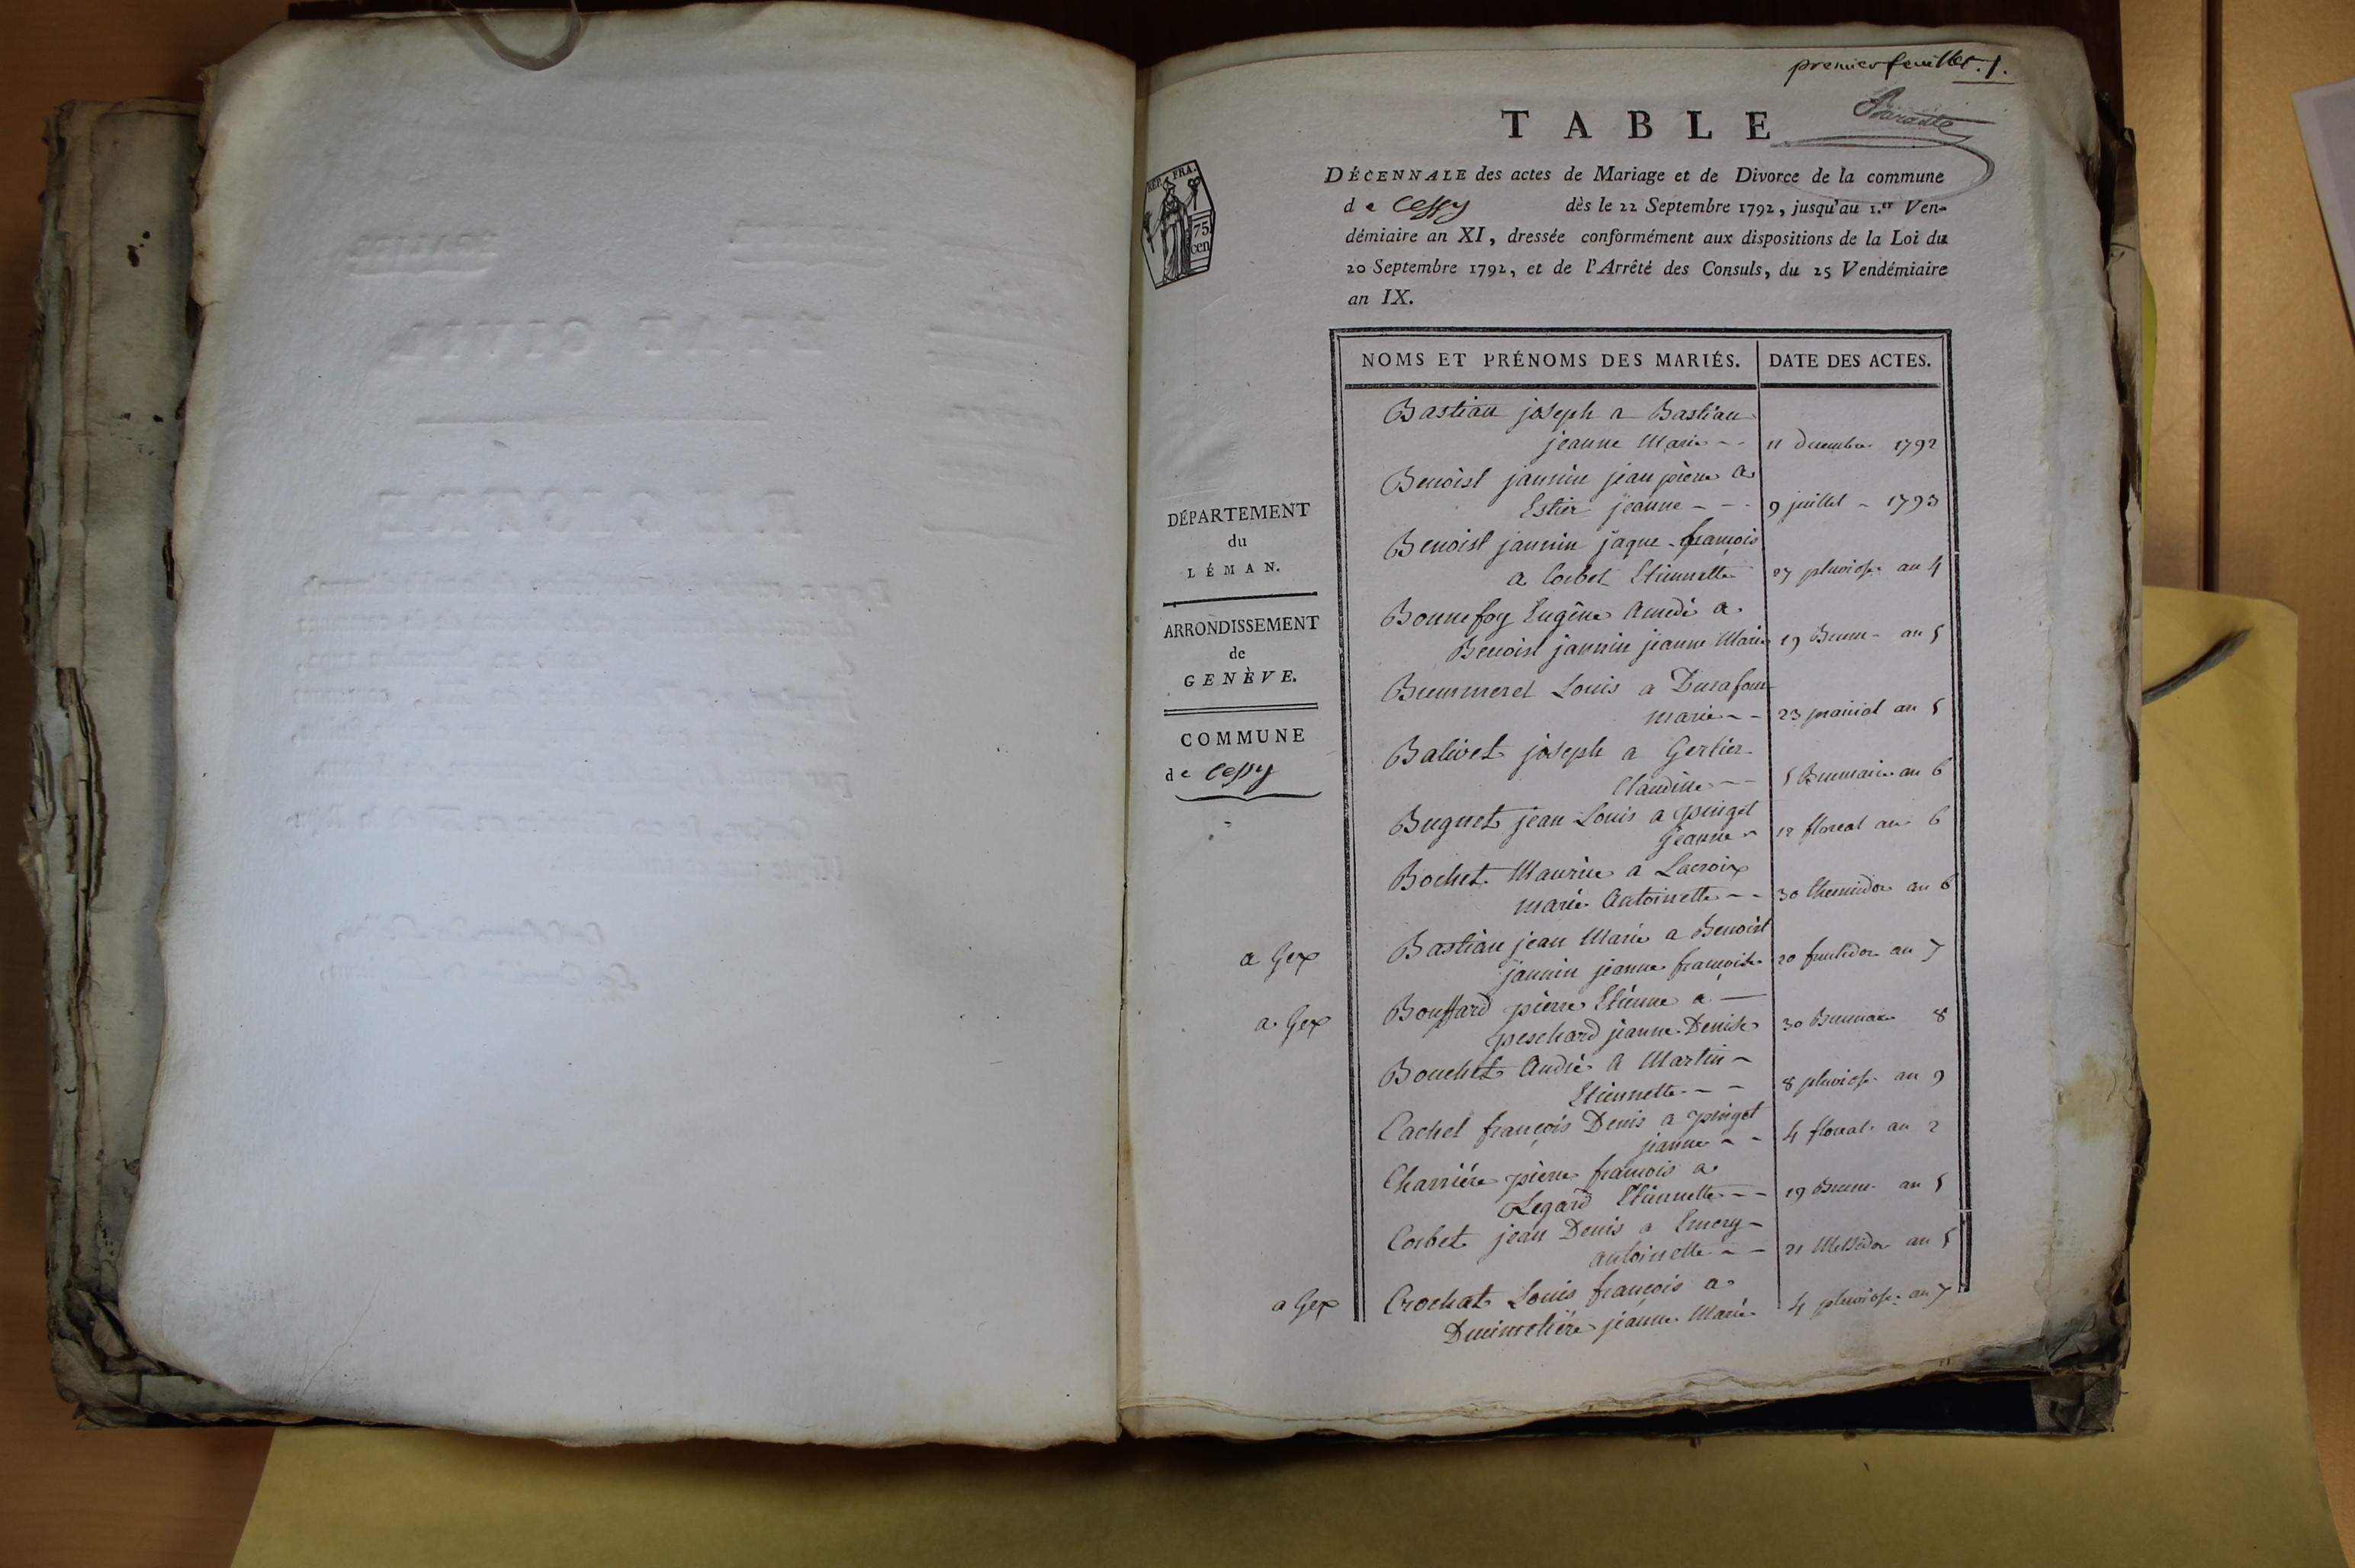 premier feuillet. 1.
TABLE
DÉCENNALE des actes de Mariage et de Divorce de la commune
de Cessy dès le 22 Septembre 1792, jusqu'au 1.er Ven-
démiaire an XI, dressée conformément aux dispositions de la Loi du
20 Septembre 1792, et de l'Arrêté des Consuls, du 25 Vendémiaire
an IX.
RÉP. FRA.
75
cen
DÉPARTEMENT
du
LÉMAN.
ARRONDISSEMENT
de
GENÈVE.
COMMUNE
de Cessy
NOMS ET PRÉNOMS DES MARIÉS. DATE DES ACTES.
Bastian joseph a Bastian
jeanne Marie -- 11 decembre 1792
Benoist jannin jean pierre a
Estier jeanne -- 9 juillet - 1793
Benoist jannin jaque-françois
a Corbet Etiennette 27 pluviose an 4
Bonnefoy Eugène Amedé a
Benoist jannin jeanne Marie 19 Brum- an 5
Louis a Durafour
marie -- 23 prairial an 5
Balivet joseph a Gerlier
Claudine -- 5 Brumaire an 6
Buguet jean Louis a pinget
Jeanne - 12 floreal an 6
Bochet Maurice a Lacroix
marie Antoinette -- 30 thermidor an 6
a Gex Bastian jean Marie a Benoist
jannin jeanne françoise 20 fructidor an 7
a Gex Bouffard pierre Etienne a —
peschard jeanne Denise 30 Brumaire 8
Bouchet André a Martin -
Etiennette -- 8 pluviose an 9
Cachet françois Denis a pinget
jeanne -- 4 floreal an 2
Charrière pierre françois a
Legard Etiennette -- 19 Brum- an 5
Corbet jean Denis a Emery -
antoinette -- 21 Messidor an 5
a Gex Crochat Louis françois a
Ducimetière jeanne Marie 4 pluviose an 7